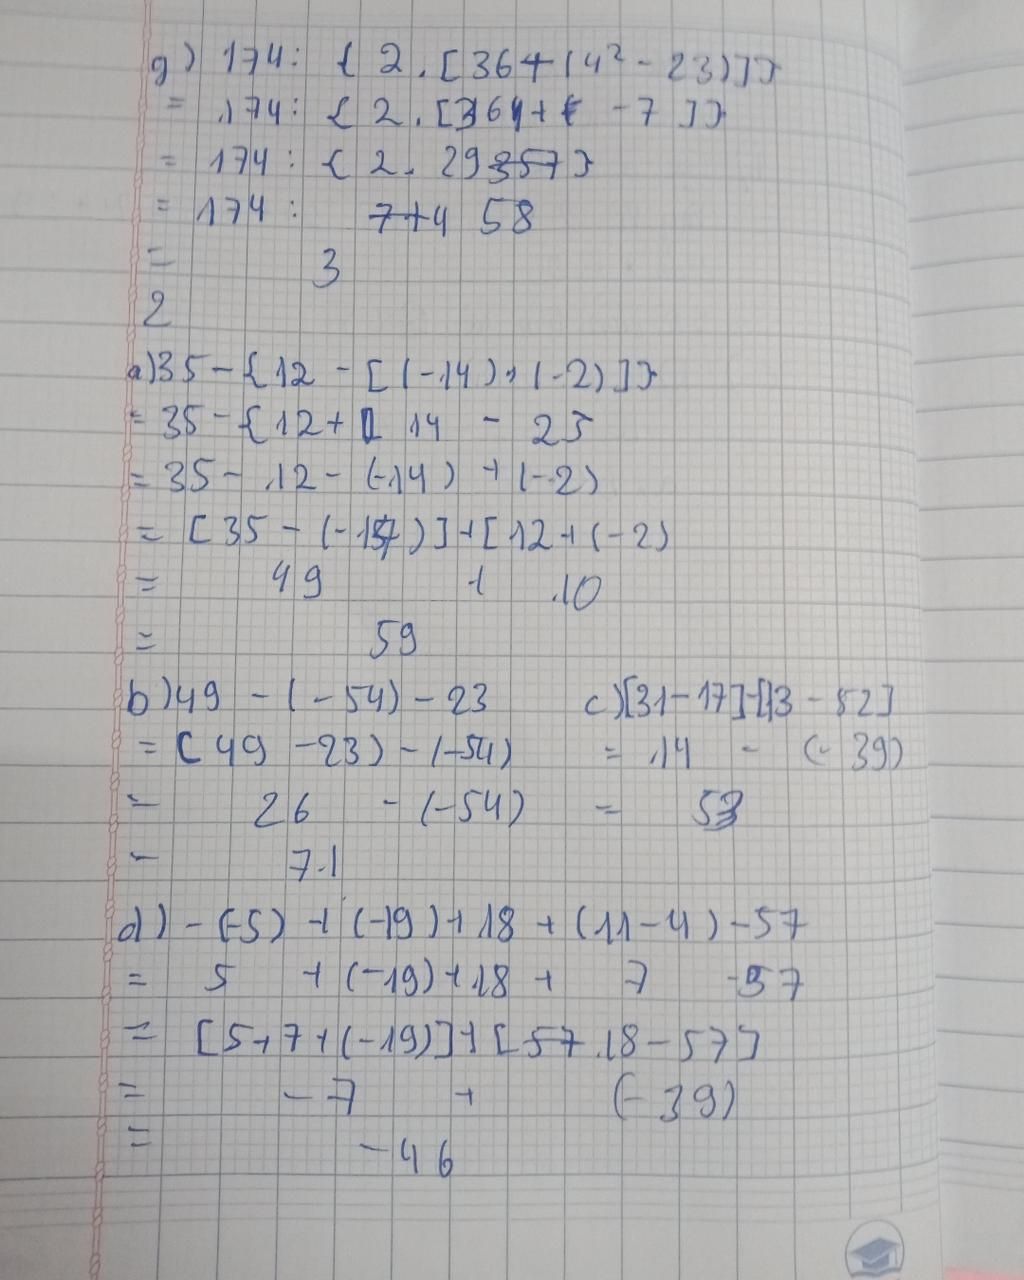 g) 174: { 2. [36+(4² - 23)]}
= 174: { 2. [36 + -7 ]}
= 174 : { 2. 29 }
= 174 : 58
= 3
2
a) 35 - {12 - [(-14) + (-2)]}
= 35 - {12 + 14 - 2}
= 35 - 12 - (-14) + (-2)
= [35 - (-14)] + [12 + (-2)
= 49 + 10
= 59
b) 49 - (-54) - 23
= (49 - 23) - (-54)
= 26 - (-54)
= 71
c) [31-17]-[13 - 52]
= 14 - (-39)
= 53
d) -(-5) + (-19) + 18 + (11-4) - 57
= 5 + (-19) + 18 + 7 -57
= [5+7+(-19)] + [18-57]
= -7 + (-39)
= -46